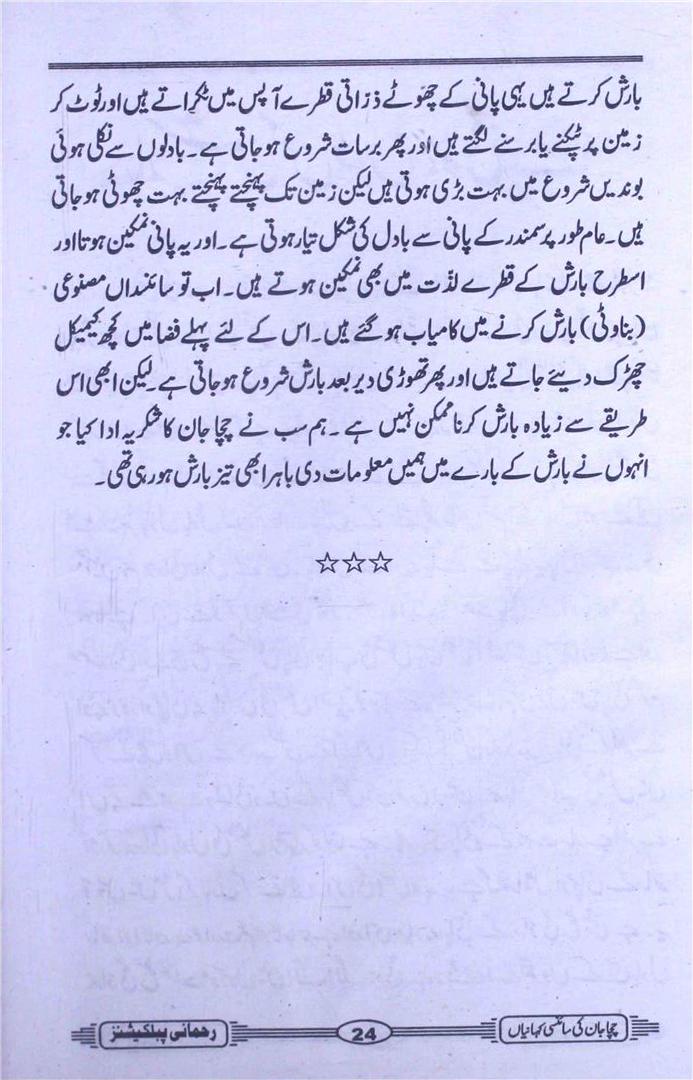 بارش کرتے ہیں یہی پانی کے چھوٹے ذرّاتی قطرے آپس میں ٹکراتے ہیں اور ٹوٹ کر
زمین پر ٹپکنے یا برسنے لگتے ہیں اور پھر برسات شروع ہوجاتی ہے۔ بادلوں سے نکلی ہوئی
بوندیں شروع میں بہت بڑی ہوتی ہیں لیکن زمین تک پہنچتے پہنچتے بہت چھوٹی ہوجاتی
ہیں۔ عام طور پر سمندر کے پانی سے بادل کی شکل تیار ہوتی ہے۔ اور یہ پانی نمکین ہوتا اور
اسطرح بارش کے قطرے لذّت میں بھی نمکین ہوتے ہیں۔ اب تو سائنسداں مصنوعی
(بناوٹی) بارش کرنے میں کامیاب ہوگئے ہیں۔ اس کے لئے پہلے فضا میں کچھ کیمیکل
چھڑک دیئے جاتے ہیں اور پھر تھوڑی دیر بعد بارش شروع ہوجاتی ہے۔ لیکن ابھی اس
طریقے سے زیادہ بارش کرنا ممکن نہیں ہے۔ ہم سب نے چچا جان کا شکریہ ادا کیا جو
انہوں نے بارش کے بارے میں ہمیں معلومات دی باہر ابھی تیز بارش ہورہی تھی۔
☆☆☆
چچا جان کی سائنسی کہانیاں 24 رحمانی پبلکیشنز